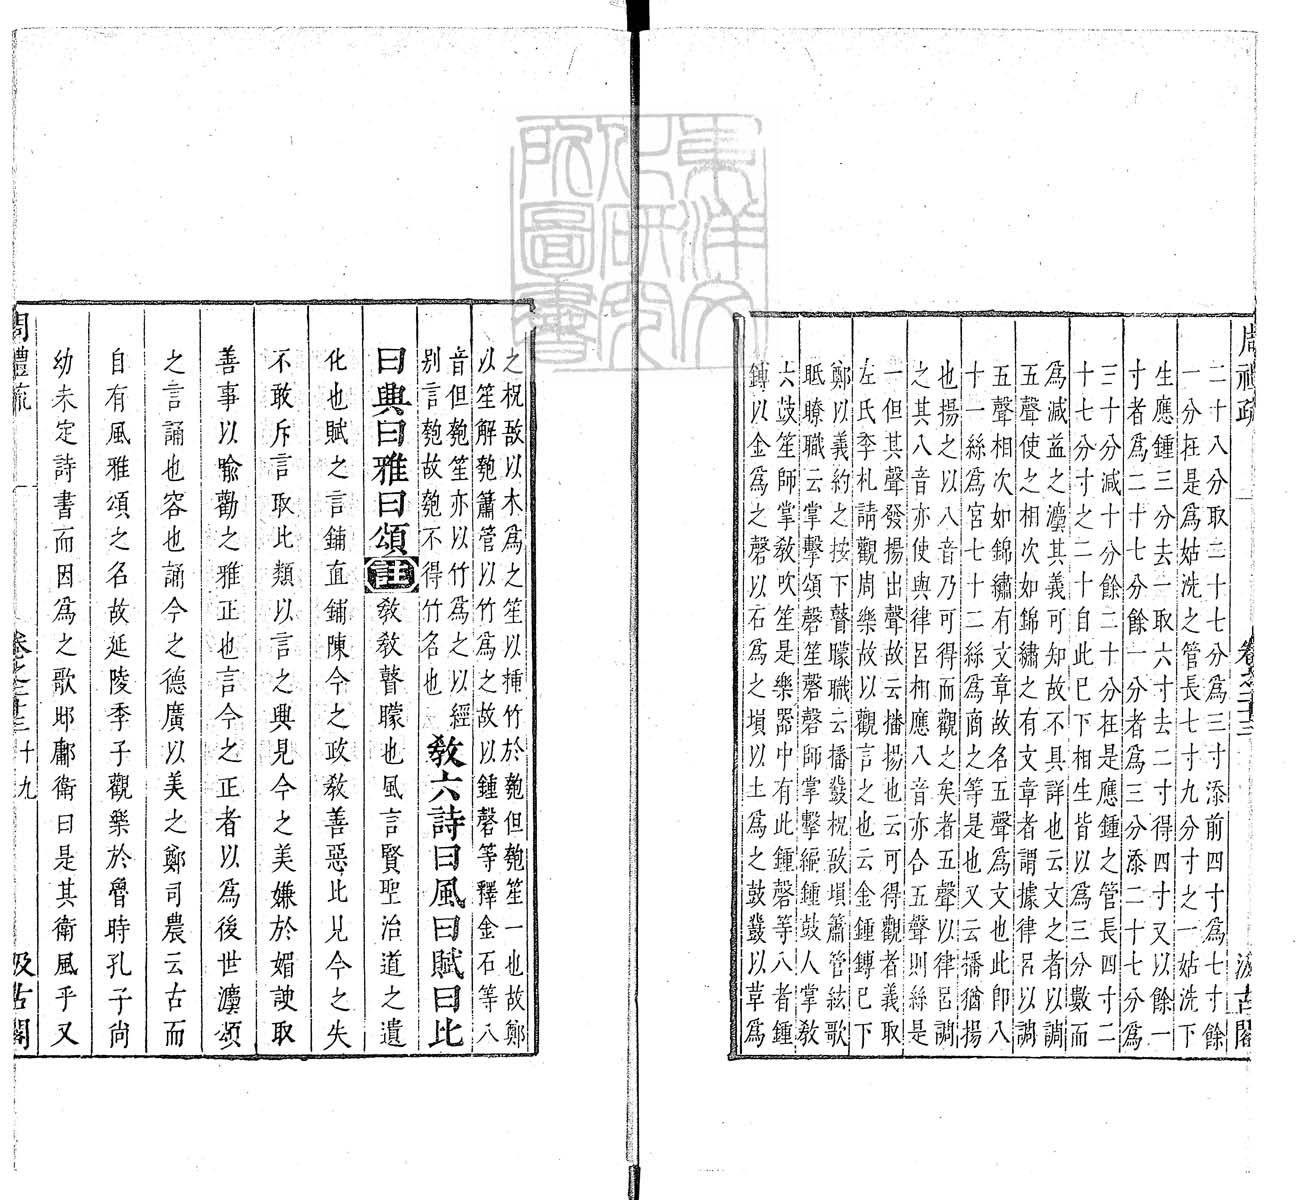 周禮疏
卷之二十三
汲古閣
二十八分取二十七分為三寸添前四寸為七寸餘
一分在是為姑洗之管長七寸九分寸之一姑洗下
生應鍾三分去一取六寸去二寸得四寸又以餘一
寸者為二十七分餘一分者為三分添二十七分為
三十分減十分餘二十分在是應鍾之管長四寸二
十七分寸之二十自此已下相生皆以為三分數而
為減益之灋其義可知故不具詳也云文之者以調
五聲使之相次如錦繡之有文章者謂據律呂以調
五聲相次如錦繡有文章故名五聲為文也此即八
十一絲為宮七十二絲為商之等是也又云播猶揚
也揚之以八音乃可得而觀之矣者五聲以律呂調
之其八音亦使與律呂相應八音亦合五聲則絲是
一但其聲發揚出聲故云播揚也云可得觀者義取
左氏季札請觀周樂故以觀言之也云金鍾鎛已下
鄭以義約之按下瞽矇職云播鼗柷敔塤簫管絃歌
眡瞭職云掌擊頌磬笙磬磬師掌擊編鍾鼓人掌教
六鼓笙師掌教吹笙是樂器中有此鍾磬等八者鍾
鎛以金為之磬以石為之塤以土為之鼓鼗以革為
之柷敔以木為之笙以插竹於匏但匏笙一也故鄭
以笙解匏簫管以竹為之故以鍾磬等釋金石等八
音但匏笙亦以竹為之以經
別言匏故匏不得竹名也
教六詩曰風曰賦曰比
曰興曰雅曰頌註教教瞽矇也風言賢聖治道之遺
化也賦之言鋪直鋪陳今之政教善惡比見今之失
不敢斥言取比類以言之興見今之美嫌於媚諛取
善事以喻勸之雅正也言今之正者以為後世灋頌
之言誦也容也誦今之德廣以美之鄭司農云古而
自有風雅頌之名故延陵季子觀樂於魯時孔子尚
幼未定詩書而因為之歌邶鄘衛曰是其衛風乎又
周禮疏
卷之二十三
十九
汲古閣
東洋文
化研究
所圖書